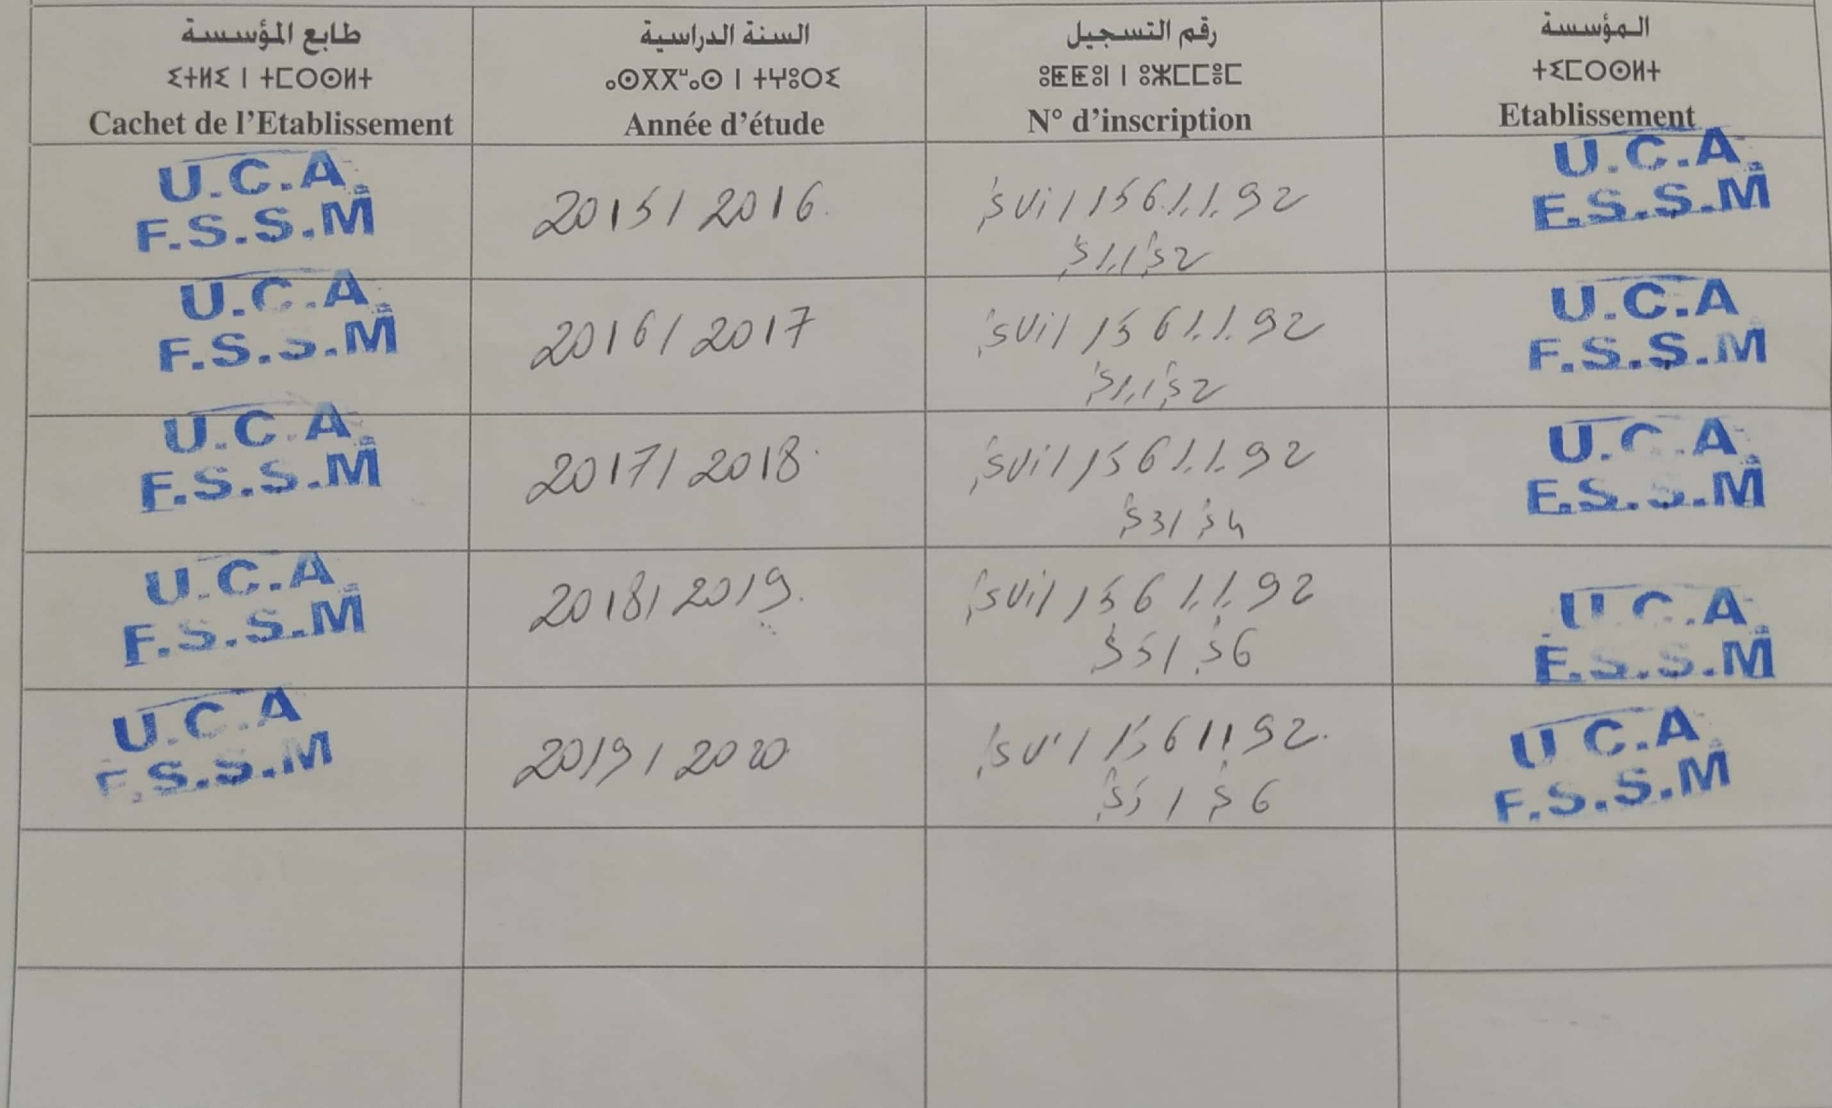 طابع المؤسسة
ⵉⵜⵍⵉ ⵏ ⵜⵎⵔⵙⵍⵜ
Cachet de l'Etablissement
السنة الدراسية
ⴰⵙⴳⴳⵯⴰⵙ ⵏ ⵜⵖⵓⵔⵉ
Année d'étude
رقم التسجيل
ⵓⵟⵟⵓⵏ ⵏ ⵓⵣⵎⵎⴻⵎ
N° d'inscription
المؤسسة
ⵜⵉⵎⵔⵙⵍⵜ
Etablissement
U.C.A
F.S.S.M
2015/2016
SVi/1561192
S1/S2
U.C.A
F.S.S.M
U.C.A
F.S.S.M
2016/2017
SVi/1561192
S1/S2
U.C.A
F.S.S.M
U.C.A
F.S.S.M
2017/2018
SVi/1561192
S3/S4
U.C.A
F.S.S.M
U.C.A
F.S.S.M
2018/2019
SVi/1561192
S5/S6
U.C.A
F.S.S.M
U.C.A
F.S.S.M
2019/2020
SVi/1561192
S5/S6
U.C.A
F.S.S.M